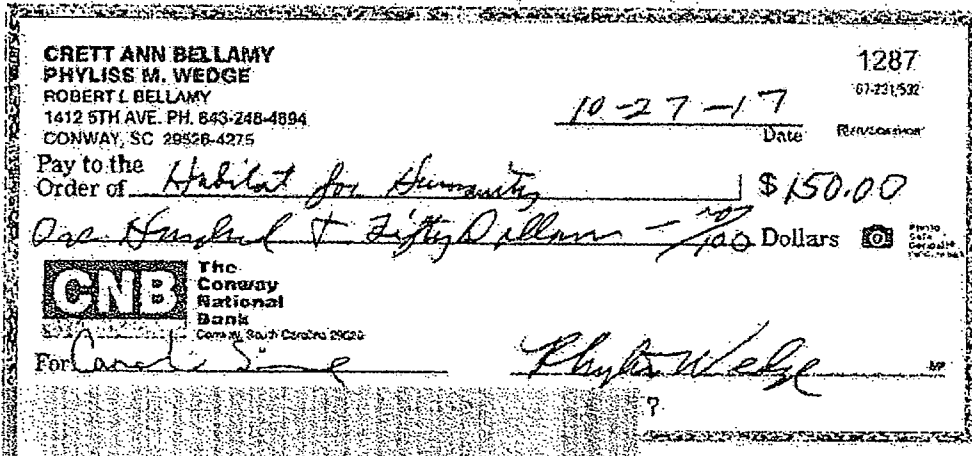 CRETT ANN BELLAMY
PHYLISS M. WEDGE
ROBERT L BELLAMY
1412 5TH AVE. PH. 843-248-4894
CONWAY, SC 29526-4275
1287
67-231/532
10-27-17
Date
Pay to the
Order of Habitat for Humanity $ 150.00
One Hundred & Fifty Dollars — no/100 Dollars
Photo
Safe
Deposit
CNB The
Conway
National
Bank
Conway, South Carolina
For
Phyliss Wedge
MP
7